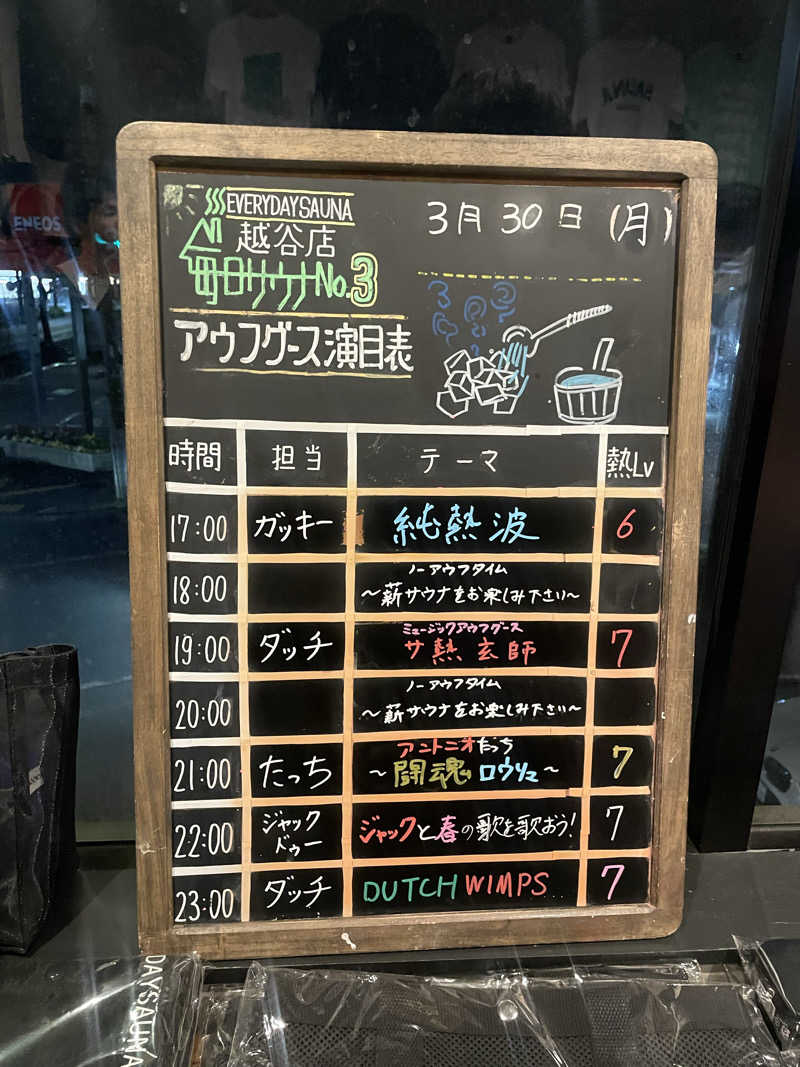 EVERYDAYSAUNA
越谷店
毎日サウナNo.3
アウフグース演目表
3月30日(月)
時間 担当 テーマ 熱Lv
17:00 ガッキー 純熱波 6
18:00 ノーアウフタイム
～薪サウナをお楽しみ下さい～
19:00 ダッチ ミュージックアウフグース
サ熱玄師 7
20:00 ノーアウフタイム
～薪サウナをお楽しみ下さい～
21:00 たっち アントニオたっち
～闘魂ロウリュ～ 7
22:00 ジャック
ドゥー ジャックと春の歌を歌おう! 7
23:00 ダッチ DUTCH WIMPS 7
ENEOS
SAUNA
DAYSAUNA